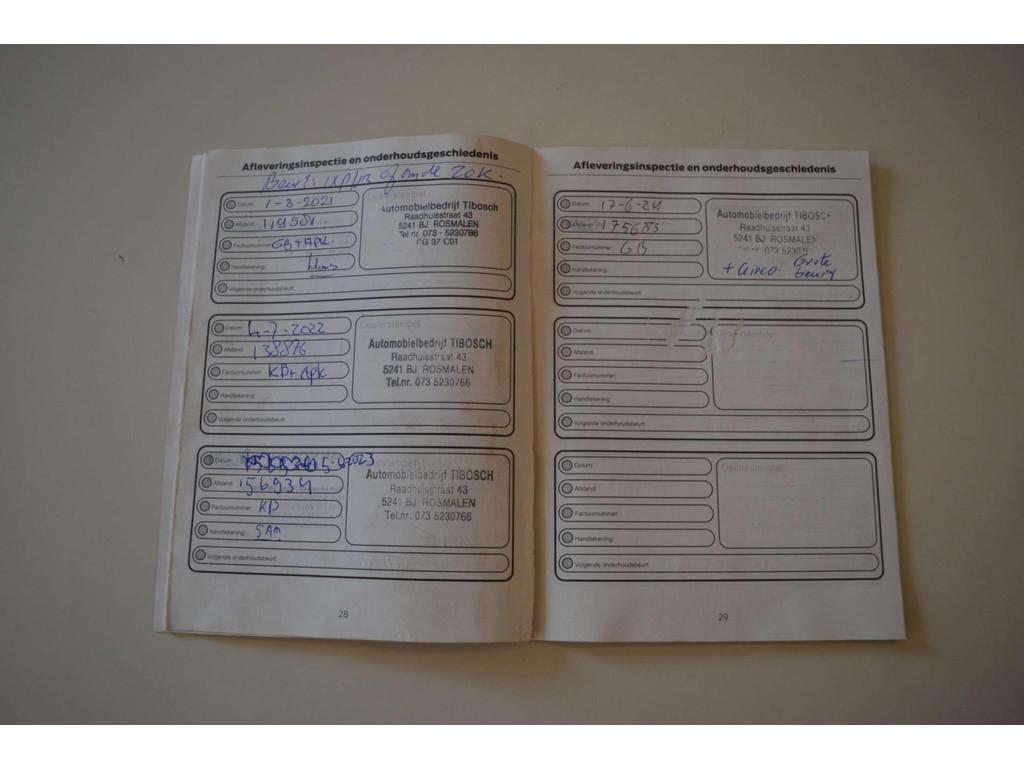 Afleveringsinspectie en onderhoudsgeschiedenis
Datum: 1-3-2021
Afstand: 119581
Factuurnummer: GB + APK.
Handtekening:
Volgende onderhoudsbeurt:
Automobielbedrijf Tibosch
Raadhuisstraat 43
5241 BJ ROSMALEN
Tel nr. 073 - 5230766
CG 37 C01
Datum: 4-7-2022
Afstand: 138876
Factuurnummer: KB + APK
Handtekening:
Volgende onderhoudsbeurt:
Dealerstempel
Automobielbedrijf TIBOSCH
Raadhuisstraat 43
5241 BJ ROSMALEN
Tel.nr. 073 5230766
Datum: 2023
Afstand: 156934
Factuurnummer: KB
Handtekening: SAM
Volgende onderhoudsbeurt:
Dealerstempel
Automobielbedrijf TIBOSCH
Raadhuisstraat 43
5241 BJ ROSMALEN
Tel.nr. 073 5230766
28
Afleveringsinspectie en onderhoudsgeschiedenis
Datum: 17-6-24
Afstand: 175683
Factuurnummer: GB
Handtekening:
Volgende onderhoudsbeurt:
Automobielbedrijf TIBOSCH
Raadhuisstraat 43
5241 BJ ROSMALEN
Tel.nr. 073 5230
+ Airco. Grote
beurt
Datum:
Afstand:
Factuurnummer:
Handtekening:
Volgende onderhoudsbeurt:
Datum:
Afstand:
Factuurnummer:
Handtekening:
Volgende onderhoudsbeurt:
Dealerstempel
29